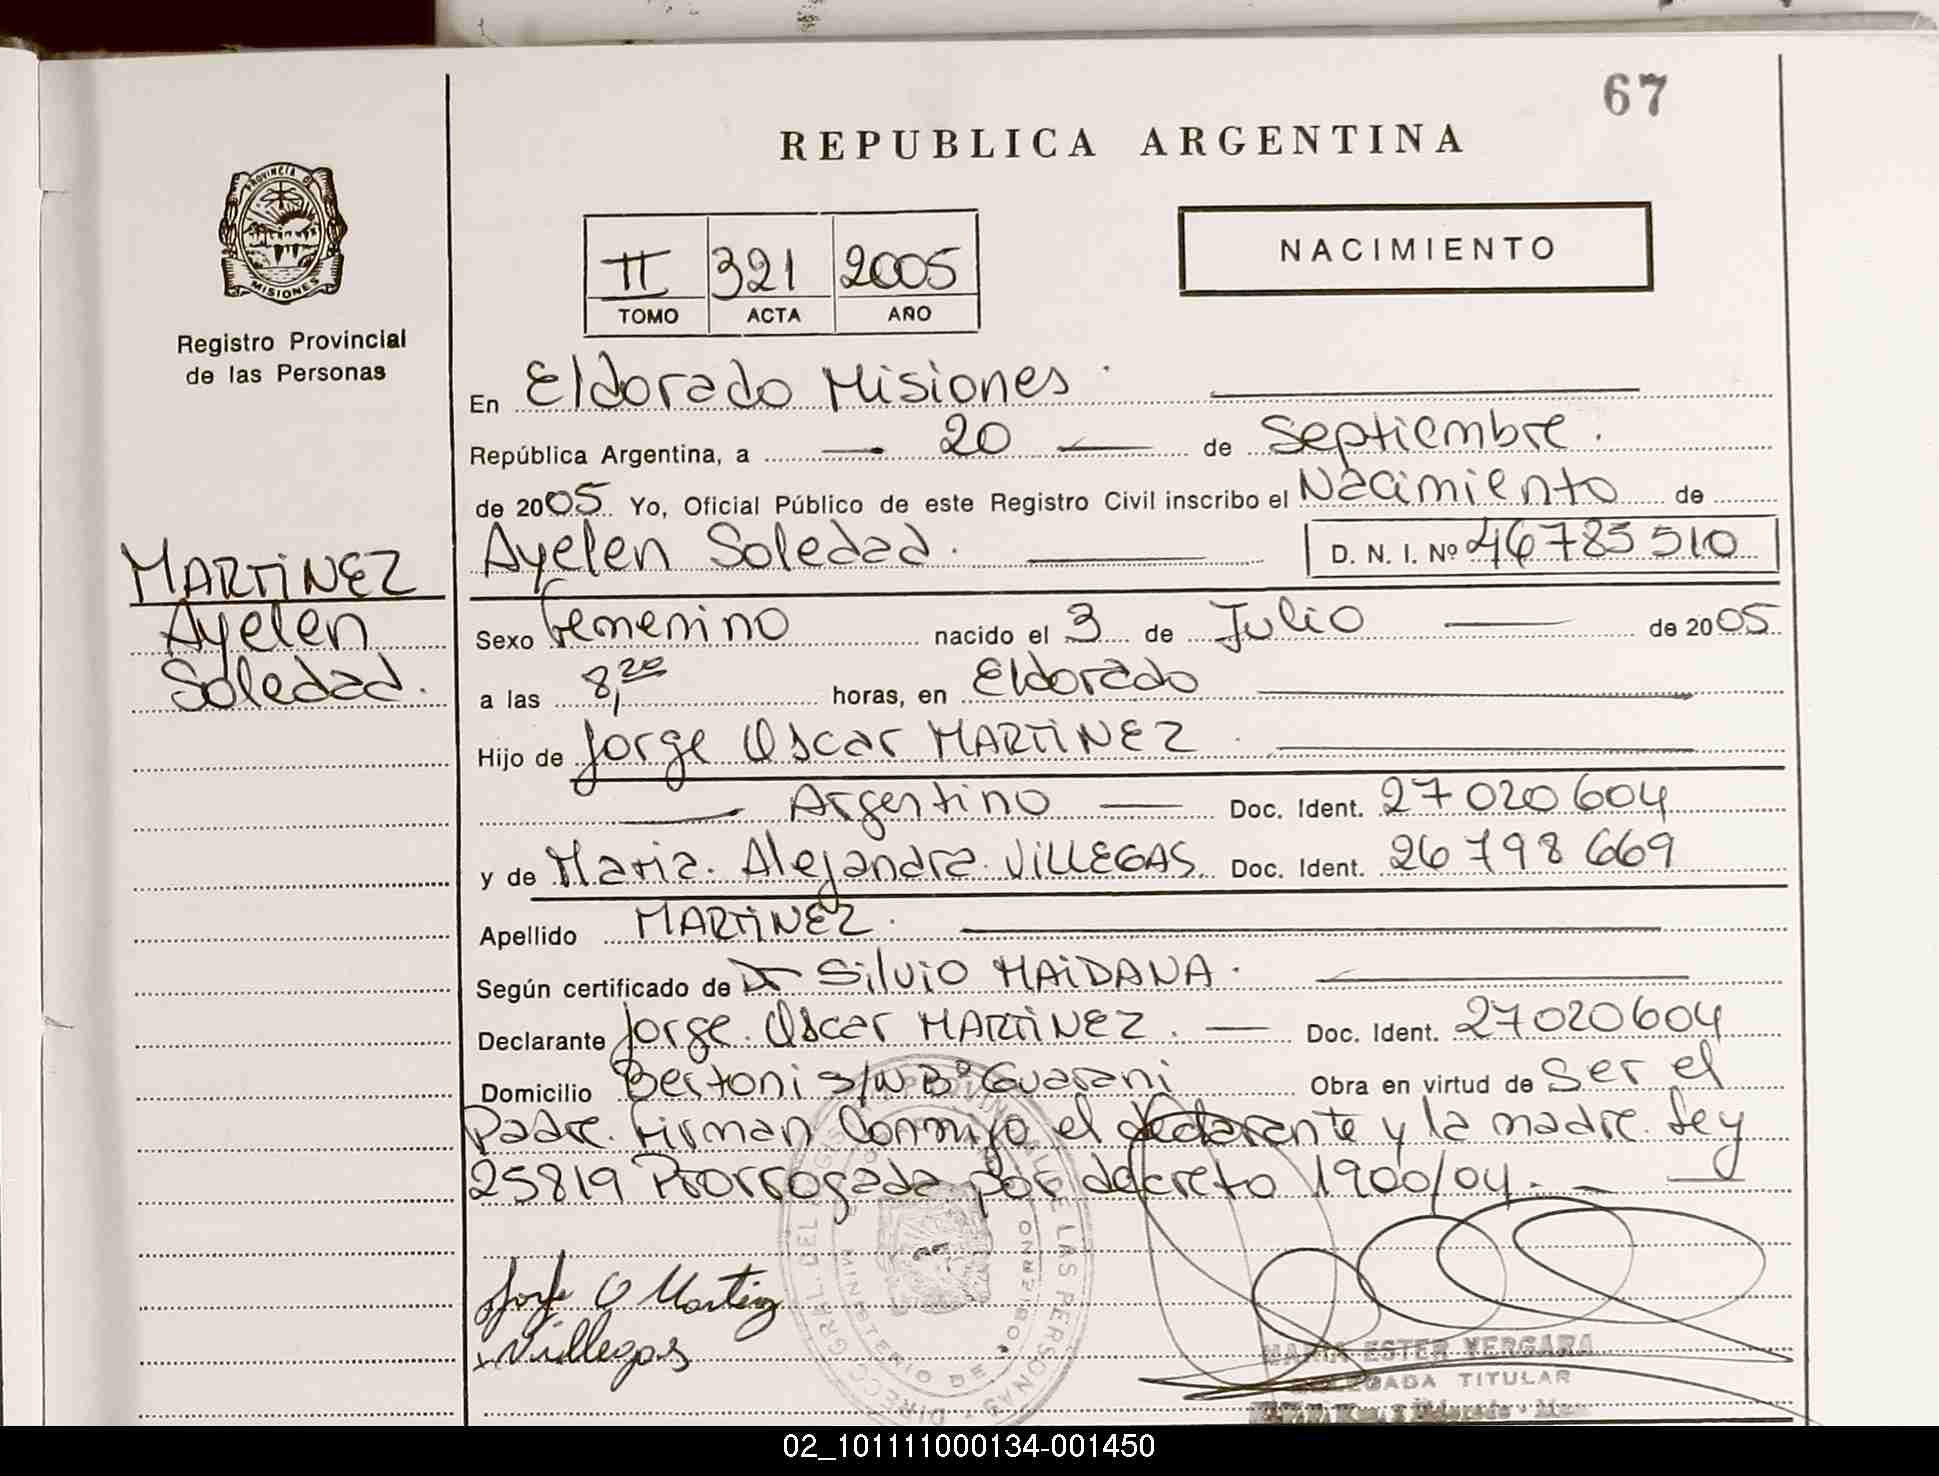 67
REPUBLICA ARGENTINA
PROVINCIA DE
MISIONES
Registro Provincial
de las Personas
II 321 2005
TOMO ACTA AÑO
NACIMIENTO
En Eldorado Misiones.
República Argentina, a 20 de Septiembre.
de 2005 Yo, Oficial Público de este Registro Civil inscribo el Nacimiento de
Ayelen Soledad. D. N. I. Nº 46785510
MARTINEZ
Ayelen
Soledad.
Sexo Femenino nacido el 3 de Julio de 2005
a las 8,20 horas, en Eldorado
Hijo de Jorge Oscar MARTINEZ
Argentino Doc. Ident. 27020604
y de Maria. Alejandra. VILLEGAS Doc. Ident. 26798669
Apellido MARTINEZ.
Según certificado de Dr Silvio MAIDANA.
Declarante Jorge. Oscar MARTINEZ. Doc. Ident. 27020604
Domicilio Bertoni s/N Bº Guarani Obra en virtud de Ser el
Padre. Firman Conmigo el declarante y la madre. Ley
25819 Prorrogada por decreto 1900/04.
Jorge O Martinez
Villegas
MARIA ESTER VERGARA
DELEGADA TITULAR
02_101111000134-001450